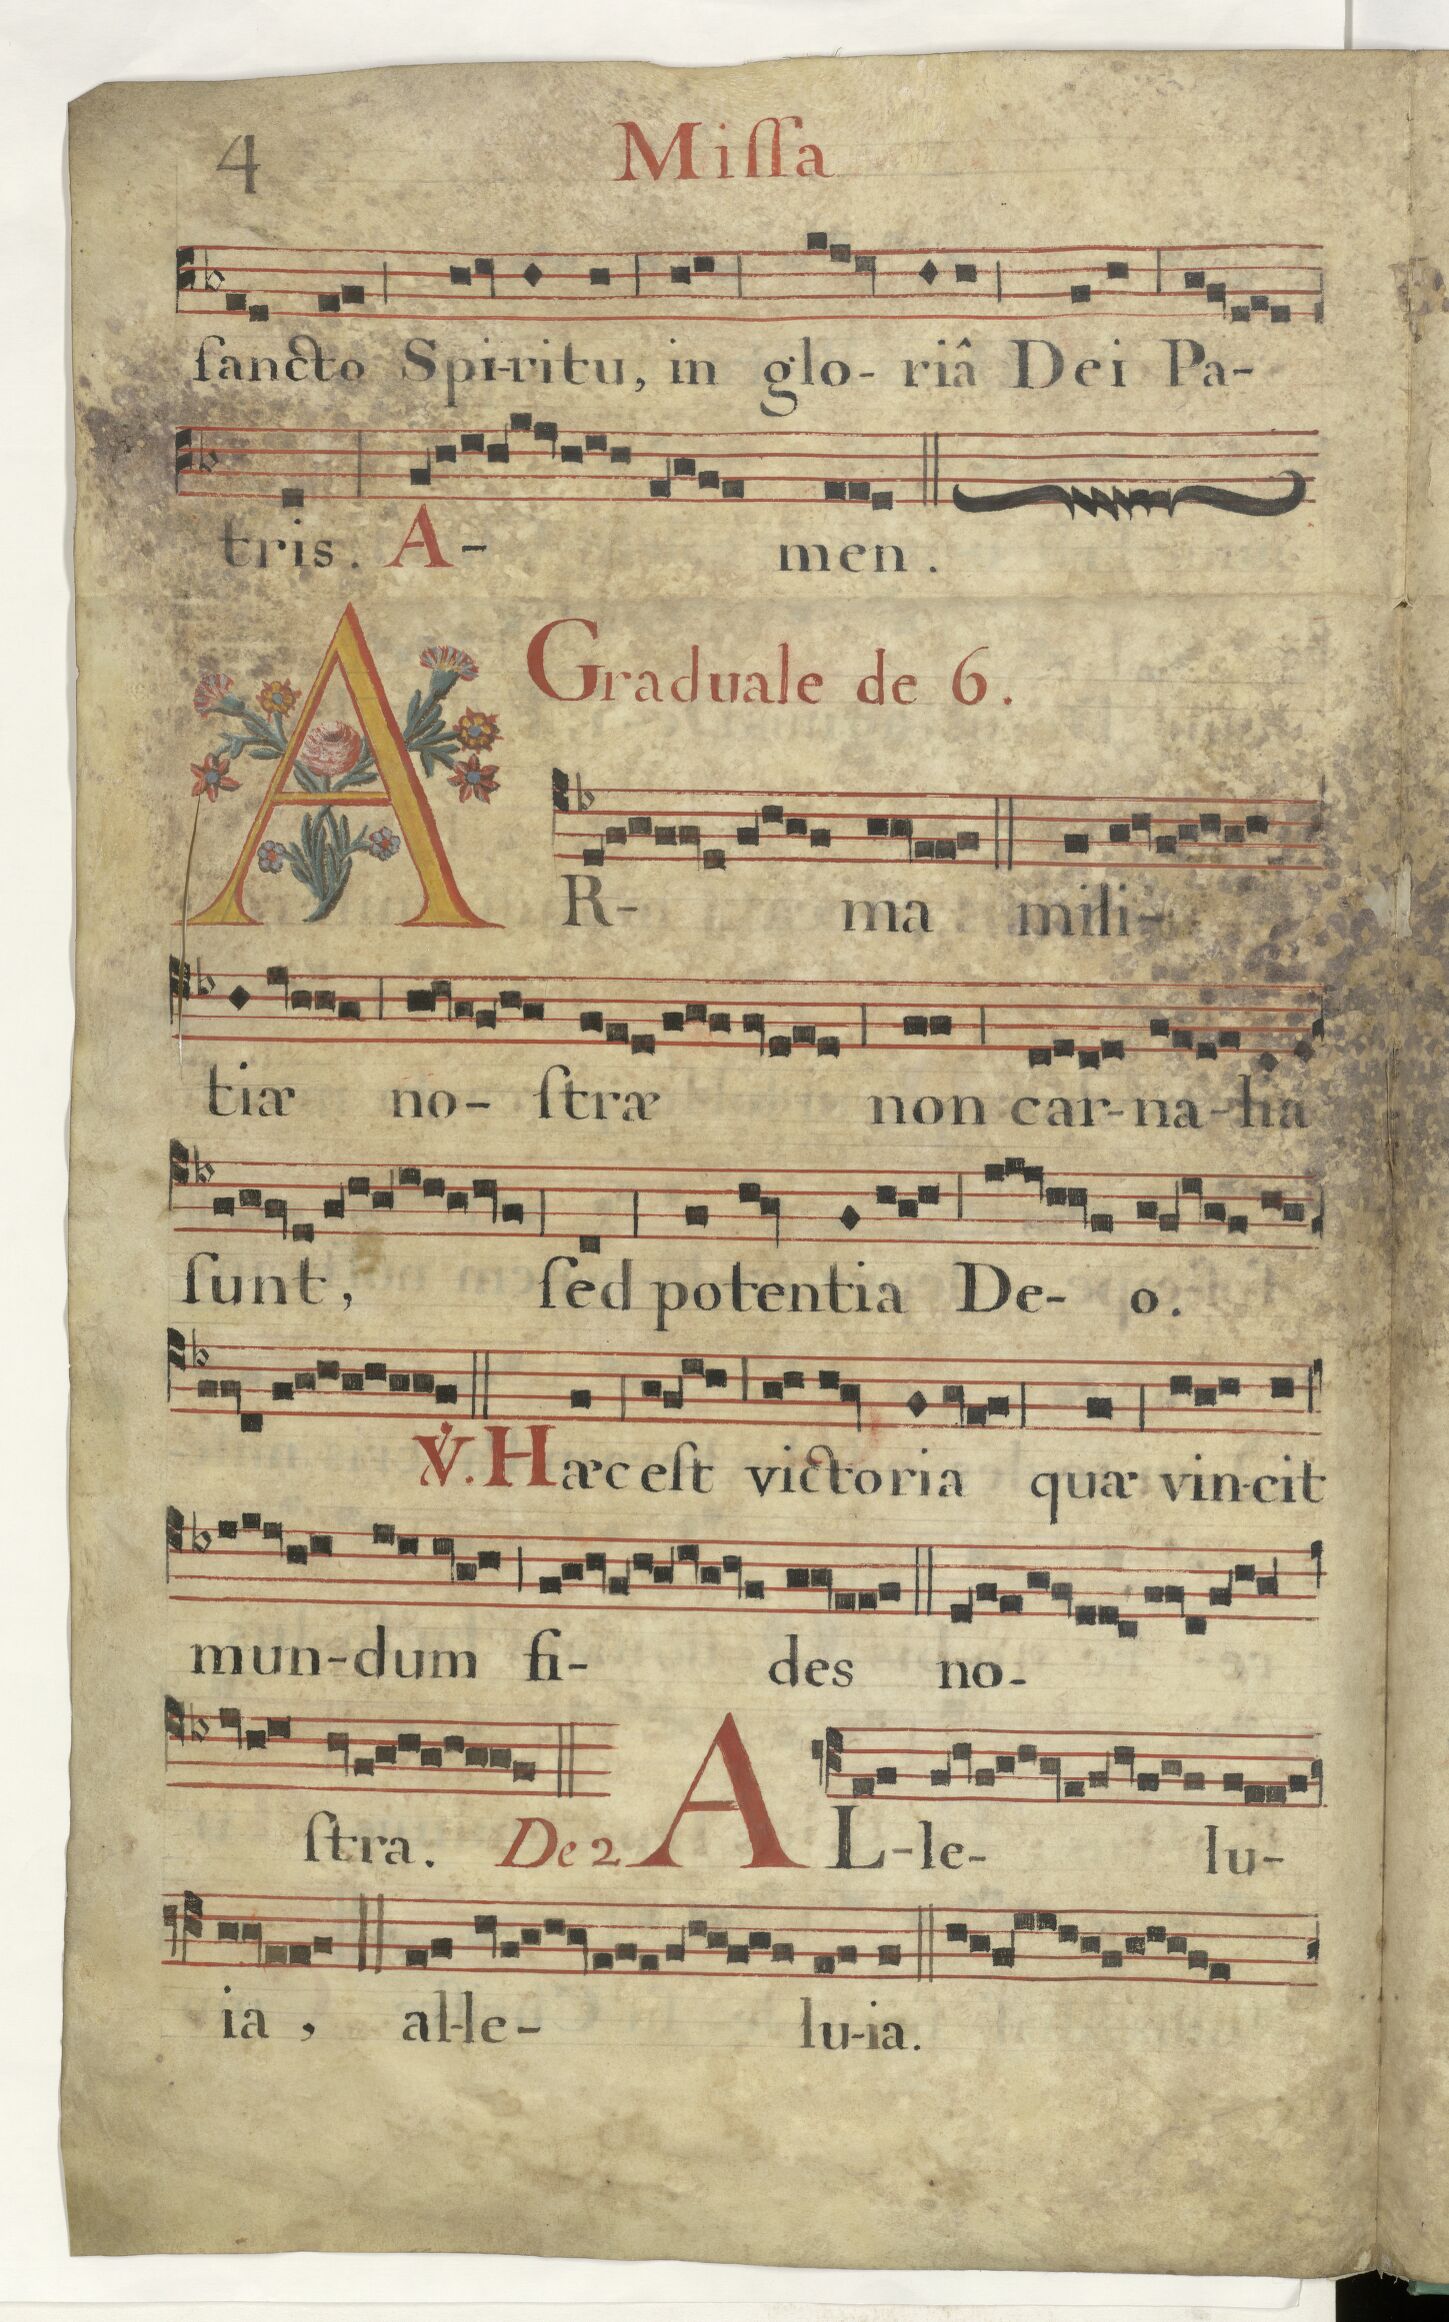 4 Miſſa
ſancto Spi-ritu, in glo- riâ Dei Pa-
tris. A- men.
Graduale de 6.
AR- ma mili-
tiæ no- ſtræ non car-na-lia
ſunt, ſed potentia De- o.
℣. Hæc eſt victoria quæ vin-cit
mun-dum fi- des no-
ſtra. De 2 AL-le- lu-
ia, al-le- lu-ia.